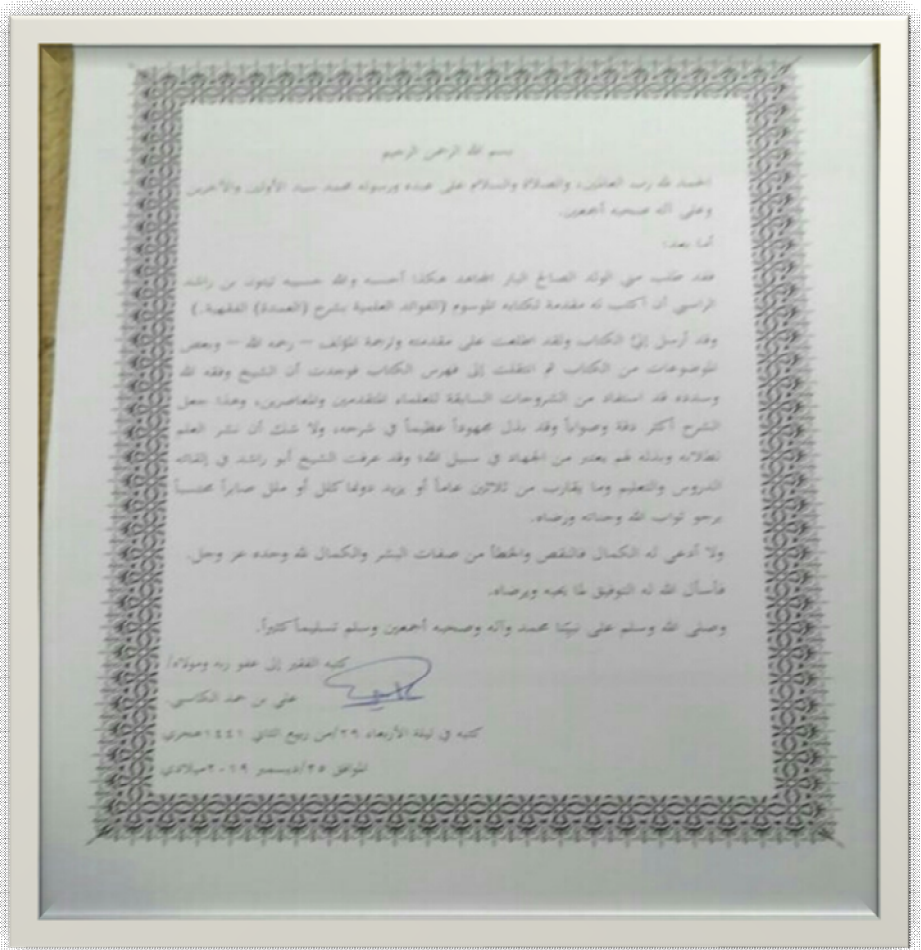 بسم الله الرحمن الرحيم
الحمد لله رب العالمين، والصلاة والسلام على عبده ورسوله محمد سيد الأولين والآخرين
وعلى آله صحبه أجمعين.
أما بعد:
فقد طلب مني الولد الصالح البار المجاهد هكذا أحسبه والله حسيبه بن راشد
الراسبي أن أكتب له مقدمة لكتابه الموسوم (الفوائد العلمية بشرح (العمدة) الفقهية.)
وقد أرسل إليَّ الكتاب ولقد اطلعت على مقدمته وترجمة المؤلف – رحمه الله – وبعض
الموضوعات من الكتاب ثم انتقلت إلى فهرس الكتاب فوجدت أن الشيخ وفقه الله
وسدده قد استفاد من الشروحات السابقة للعلماء المتقدمين والمعاصرين، وهذا جعل
الشرح أكثر دقة وصواباً وقد بذل مجهوداً عظيماً في شرحه، ولا شك أن نشر العلم
لطلابه وبذله لهم يعتبر من الجهاد في سبيل الله؛ وقد عرفت الشيخ أبو راشد في إلقائه
الدروس والتعليم وما يقارب من ثلاثين عاماً أو يزيد دونما كلل أو ملل صابراً محتسباً
يرجو ثواب الله وجناته ورضاه.
ولا أدعي له الكمال فالنقص والخطأ من صفات البشر والكمال لله وحده عز وجل.
فأسأل الله له التوفيق لما يحبه ويرضاه.
وصلى الله وسلم على نبينا محمد وآله وصحبه أجمعين وسلم تسليماً كثيراً.
كتبه الفقير إلى عفو ربه ومولاه/
علي بن حمد الكاسبي.
كتبه في ليلة الأربعاء ٢٩/من ربيع الثاني ١٤٤١هجري
الموافق ٢٥/ديسمبر ٢٠١٩ميلادي